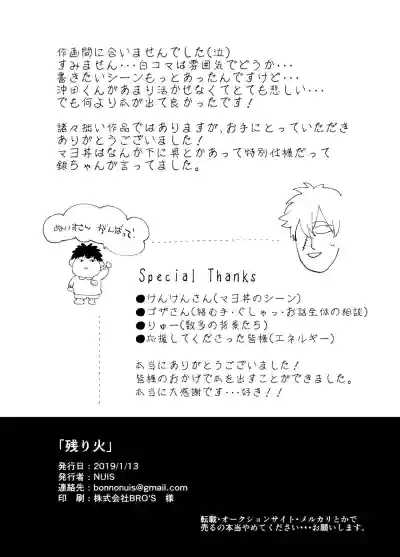 作画間に合いませんでした(泣)
すみません・・・白コマは雰囲気でどうか・・・
書きたいシーンもっとあったんですけど・・・
沖田くんがあまり活かせなくてとても悲しい・・・
でも何より本が出て良かったです！
諸々拙い作品ではありますが、お手にとっていただき
ありがとうございました！
マヨ丼はなんか下に具とかあって特別仕様だって
銀ちゃんが言ってました。
ぬいすさん がんばって
Special Thanks
●けんけんさん(マヨ丼のシーン)
●ゴザさん(絡む手・ぐしゃっ・お話全体の相談)
●りゅー(数多の背景たち)
●応援してくださった皆様(エネルギー)
本当にありがとうございました！
皆様のおかげで本を出すことができました。
本当に大感謝です・・・好き！！
「残り火」
発行日：2019/1/13
発行者：NUIS
連絡先：bonnonuis@gmail.com
印　刷：株式会社BRO'S　様
転載・オークションサイト・メルカリとかで
売るの本当やめてください・・・お願いします。